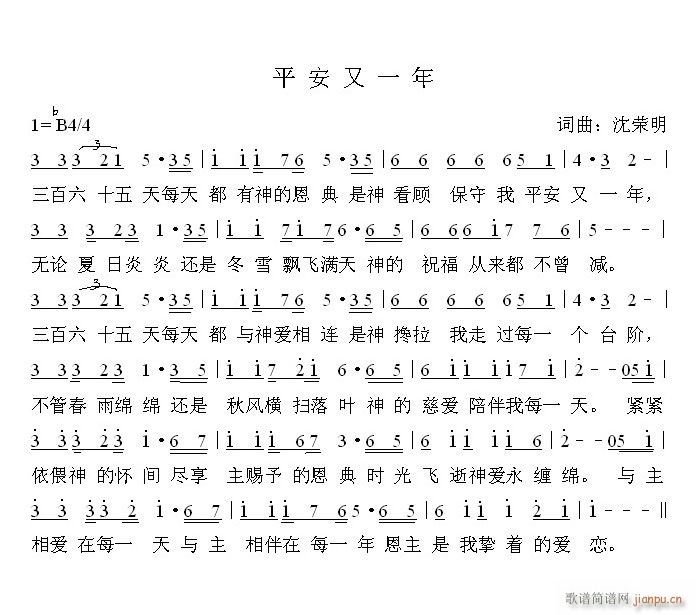 平安又一年
1=♭B4/4 词曲：沈荣明
3 3 3 3 2 1 5·3 5 | i i i 7 6 5·3 5 | 6 6 6 6 5 1 | 4·3 2 - |
三百六 十五 天每天 都 有神的恩 典 是神 看顾 保守 我 平安 又 一 年，
3 3 3 3 2 3 1·3 5 | i i 7 i 7 6·6 5 | 6 6 6 i 7 7 6 | 5 - - - |
无论 夏 日炎 炎 还是 冬 雪 飘飞满天 神的 祝福 从来都 不曾 减。
3 3 3 3 2 1 5·3 5 | i i i 7 6 5·3 5 | 6 6 6 6 5 1 | 4·3 2 - |
三百六 十五 天每天 都 与神爱相 连 是神 搀拉 我走 过每一 个 台 阶，
3 3 3 3 2 3 1·3 5 | i i 7 2 i 6·6 5 | 6 i i i 6 i 7 | 2 - - 0 5 i |
不管春 雨绵 绵 还是 秋风横 扫落 叶 神 的 慈爱 陪伴我每一 天。 紧紧
3 3 3 3 2 3 i·6 7 | i i i 6 7 3·6 5 | 6 i i i i 6 | 2 - - 0 5 i |
依偎神 的怀 间 尽享 主赐予 的恩 典 时 光 飞 逝神爱永 缠 绵。 与 主
3 3 3 3 2 i·6 7 | i 2 i 6 5·6 5 | 6 i i i 2 i | i - - - ||
相爱 在每一 天 与 主 相伴在 每一 年 恩主 是 我挚 着 的爱 恋。
歌谱简谱网
jianpu.cn